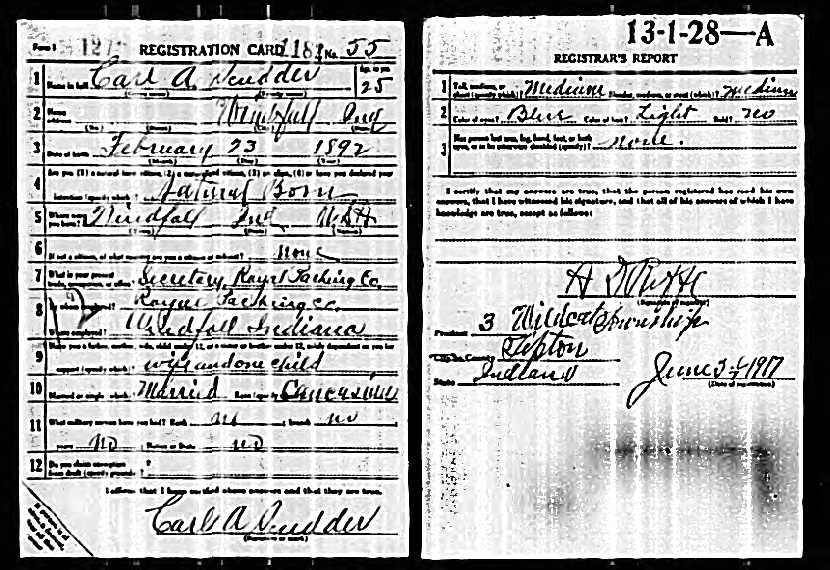 Form 1 REGISTRATION CARD No. 55
1 Name in full Carl A. Scudder Age in yrs 25
2 Home address Windfall Ind
3 Date of birth February 23 1892
4 Are you (1) a natural-born citizen, (2) a naturalized citizen, (3) an alien, (4) or have you declared your
intention (specify which)? Natural Born
5 Where were you born? Windfall Ind USA
6 If not a citizen, of what country are you a citizen or subject? None
7 What is your present trade, occupation, or office? Secretary Royal Packing Co.
8 By whom employed? Packing Co.
Where employed? Windfall Indiana
9 Have you a father, mother, wife, child under 12, or a sister or brother under 12, solely dependent on you for
support (specify which)? wife and one child
10 Married or single (which)? Married Race (specify which)? Caucasian
11 What military service have you had? Rank no branch no
years no Nation or State no
12 Do you claim exemption from draft (specify grounds)?
I affirm that I have verified above answers and that they are true.
Carl A Scudder
(Signature or mark)
13-1-28—A
REGISTRAR'S REPORT
1 Tall, medium, or short (specify which)? Medium Slender, medium, or stout (which)? medium
2 Color of eyes? Blue Color of hair? Light Bald? no
3 Has person lost arm, leg, hand, foot, or both eyes, or is he otherwise disabled (specify)? none.
I certify that my answers are true, that the person registered has read his own
answers, that I have witnessed his signature, and that all of his answers of which I have
knowledge are true, except as follows:
(Signature of registrar)
Precinct 3 Wildcat Township
City or County Tipton
State Indiana
June 5 1917
(Date of registration)